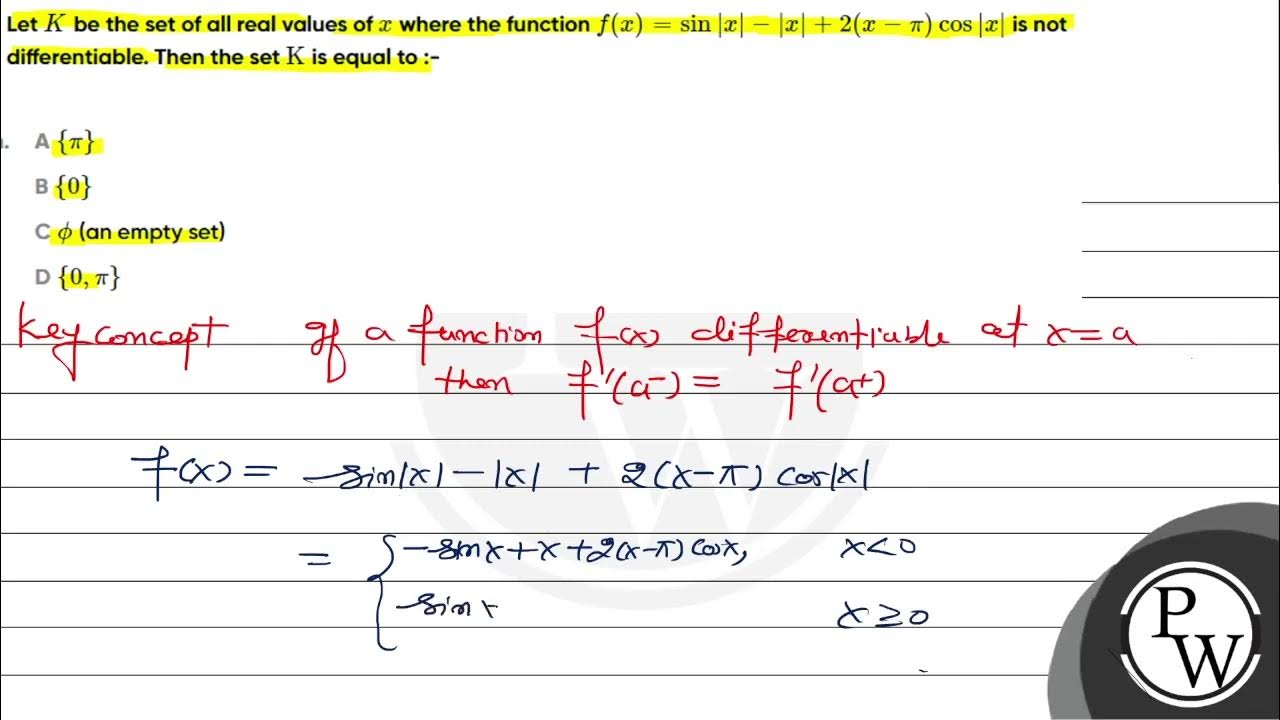 Let K be the set of all real values of x where the function f(x) = sin |x| − |x| + 2(x − π) cos |x| is not
differentiable. Then the set K is equal to :-
A {π}
B {0}
C ϕ (an empty set)
D {0, π}
Key concept If a function f(x) differentiable at x=a
then f'(a-) = f'(a+)
f(x) = sin|x| - |x| + 2(x-π) cos|x|
= { -sinx + x + 2(x-π) cosx, x<0
sinx x ≥ 0
P
W